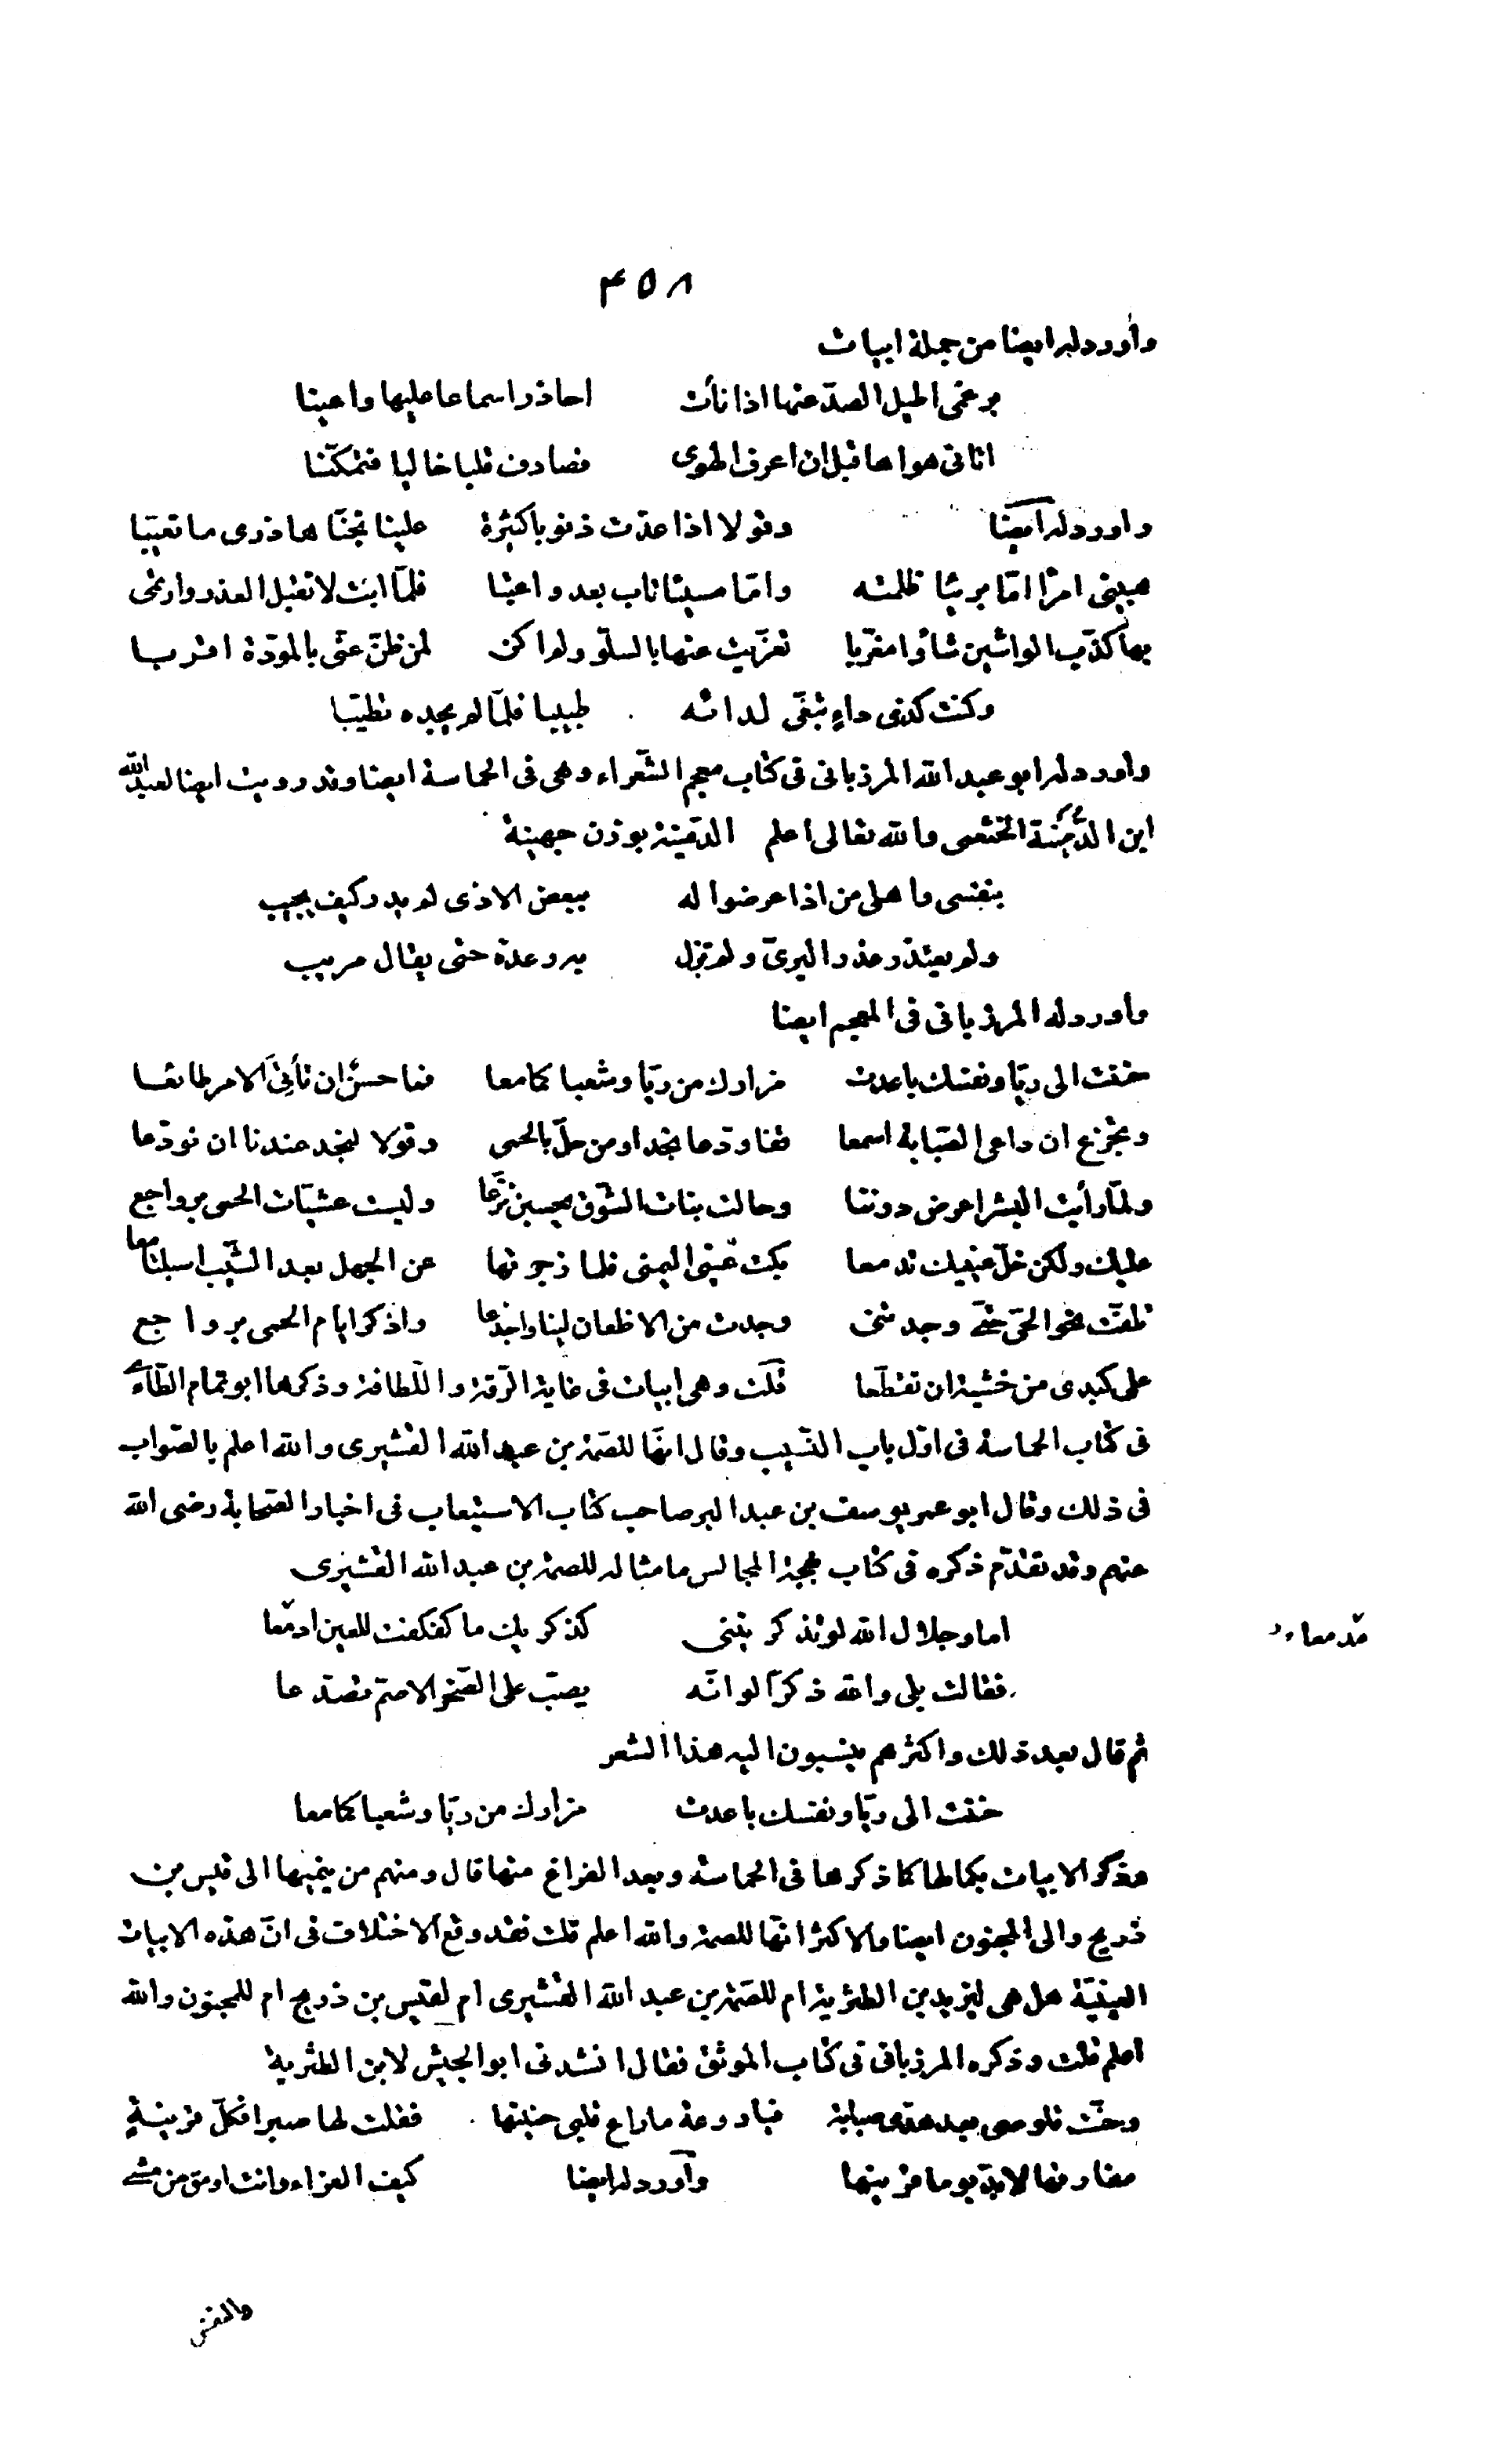 ٤٥٨
وأورد له ايضا من جملة ابيات
برغمى اطيل الصدّ عنها اذا نأت احاذر اسماعا عليها واعينا
اتانى هواها قبل ان اعرف الهوى فصادف قلبا خاليا فتمكّنا
واورد له ايضا وقولا اذا عدّت ذنوبا كثيرة علينا تجنّاها ذرى ما تعيّبا
هبينى امرًا امّا بريئا ظلمته وامّا مسيئا تاب بعد واعتبا فلمّا ابت لا تقبل العذر وارتمى
بها كذب الواشين شأوا مغرّبا تعزّيت عنها بالسلوّ ولم اكن لمن ظنّ عنّى بالمودّة اقربا
وكنت كذى داءٍ تبغّى لدائه طبيبا فلمّا لم يجده تطبّبا
واورد له ابو عبد الله المرزبانى فى كتاب معجم الشعراء وهى فى الحماسة ايضا وقد رويت ايضا لعبد الله
ابن الدُّمَيْنة الخثعمى والله تعالى اعلم الدمينة بوزن جهينة
بنفسى واهلى من اذا عرضوا له ببعض الاذى لم يدر كيف يجيب
ولم يعتذر عذر البرىّ ولم تزل به روعدة حتى يقال مريب
وأورد له المرزبانى فى المعجم ايضا
حننت الى ريّا ونفسك باعدت مزارك من ريّا وشعبا كما معا فما حسن ان تأتى الامر طائعا
وتجزع ان داعى الصبابة اسمعا قفا ودّعا نجدا ومن حلّ بالحمى وقولا لنجد عندنا ان نودّعا
ولمّا رأيت البشر اعرض دوننا وحالت بنات الشّوق يحسبن نزّعا وليست عشيّات الحمى برواجع
عليك ولكن خلّ عينيك تدمعا بكت عينى اليمنى فلما زجرتها عن الجهل بعد الشّيب اسبلتا معا
تلفّت نحو الحىّ حتّى وجدتنى وجدت من الاظعان ليتا واخدعا واذكر ايام الحمى برواجع
على كبدى من خشية ان تقطّعا قلت وهى ابيات فى غاية الرّقة واللّطافة وذكرها ابو تمام الطّائى
فى كتاب الحماسة فى اوّل باب النّسيب وقال انها للصّمة بن عبد الله القشيرى والله اعلم بالصّواب
فى ذلك وقال ابو عمر يوسف بن عبد البر صاحب كتاب الاستيعاب فى اخبار الصّحابة رضى الله
عنهم وقد تقدّم ذكره فى كتاب بهجة المجالس ما مثاله للصمة بن عبد الله القشيرى
اما وجلال الله لو تذكرينى كذكريك ما كفكفت للعين ادمعا
مدمعا
فقالت بلى والله ذكرًا لو انّه يصبّ على الصّخر الاصمّ تصدّعا
ثم قال بعد ذلك واكثرهم ينسبون اليه هذا الشعر
حننت الى ريّا ونفسك باعدت مزارك من ريّا وشعبا كما معا
وذكر الابيات بكمالها كما ذكرها فى الحماسة وبعد الفراغ منها قال ومنهم من ينسبها الى قيس بن
ذريح والى المجنون ايضا والاكثر انّها للصمة والله اعلم قلت فقد وقع الاختلاف فى انّ هذه الابيات
العينيّة هل هى ليزيد بن الطثرية ام للصمة بن عبد الله القشيرى ام لقيس بن ذريح ام للمجنون والله
اعلم قلت وذكره المرزبانى فى كتاب الموثق فقال انشدنى ابو الجيش لابن الطثرية
وحنّت قلوصى بعد هدء صبابة فيا روعة ما راع قلبى حنينها فقلت لها صبرا فكلّ قرينةٍ
مفارقها لا بدّ يوما قرينها وأورد له ايضا كيف العزاء وانت اومق من مشى
والنفس